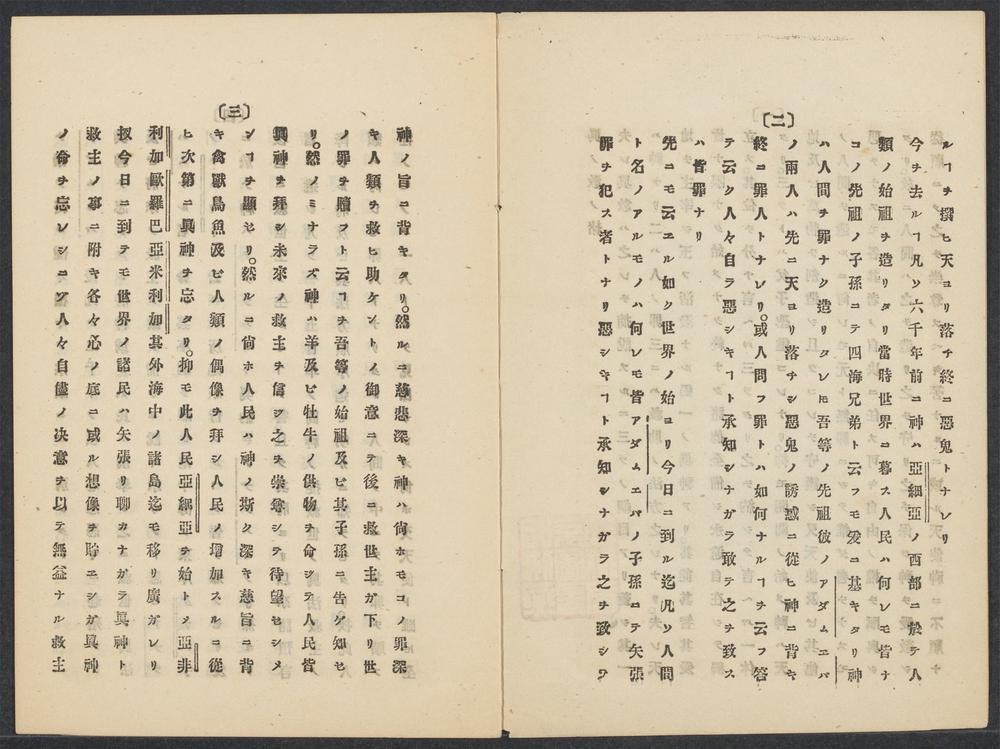 〔二〕
ルヿヲ撰ヒ天ヨリ落チ終ニ惡鬼トナレリ
今ヲ去ルヿ凡ソ六千年前ニ神ハ亞細亞ノ西部ニ於テ人
類ノ始祖ヲ造リタリ當時世界ニ暮ス人民ハ何レモ皆ナ
コノ先祖ノ子孫ニテ四海兄弟ト云フモ爰ニ基キタリ神
ハ人間ヲ罪ナク造リタレ𪜈吾等ノ先祖彼ノアダムエバ
ノ兩人ハ先ニ天ヨリ落チシ惡鬼ノ誘惑ニ從ヒ神ニ背キ
終ニ罪人トナレリ。或人問フ罪トハ如何ナルヿヲ云フ答
テ云ク人々自ラ惡シキヿト承知シナガラ敢テ之ヲ致ス
ハ皆罪ナリ
先ニモ云エル如ク世界ノ始ヨリ今日ニ到ル迄凡ソ人間
ト名ノアルモノハ何レモ皆アダムエバノ子孫ニテ矢張
罪ヲ犯ス者トナリ惡シキヿト承知シナガラ之ヲ致シワ
〔三〕
神ノ旨ニ背キタリ。然ルニ慈悲深キ神ハ尙ホモコノ罪深
キ人類ヲ救ヒ助ケントノ御意ニテ後ニ救世主ガ下リ世
ノ罪ヲ贖フト云ヿヲ吾等ノ始祖及ビ其子孫ニ告ゲ知セ
リ。然ノミナラズ神ハ羊及ビ牡牛ノ供物ヲ命シテ人民皆
眞神ヲ拜シ未來ノ救主ヲ信シ之ヲ崇敬シテ待望セシメ
ンヿヲ顯セリ。然ルニ尙ホ人民ハ神ノ斯ク深キ慈旨ニ背
キ禽獸鳥魚及ビ人類ノ偶像ヲ拜シ人民ノ增加スルニ從
ヒ次第ニ眞神ヲ忘タリ。抑モ此人民亞細亞ヲ始トメ亞非
利加歐羅巴亞米利加其外海中ノ諸島迄モ移リ廣ガレリ
扨今日ニ到テモ世界ノ諸民ハ矢張リ聊カナガラ眞神ト
救主ノ事ニ附キ各々心ノ底ニ或ル想像ヲ貯エシガ眞神
ノ命ヲ忘レシニゾ人々自儘ノ决意ヲ以テ無益ナル救主